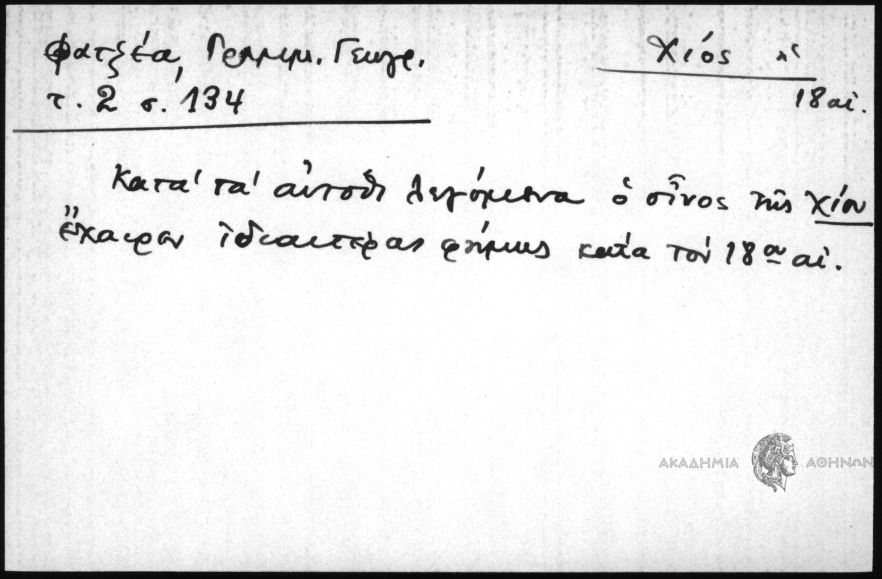 Φατζέα, Γραμμ. Γεωγρ.
Χίος
τ. 2 σ. 134
18 αἰ.
Κατὰ τὰ αὐτόθι λεγόμενα ὁ οἶνος τῆς Χίου
ἔχαιρεν ἰδιαιτέρας φήμης κατὰ τὸν 18ον αἰ.
ΑΚΑΔΗΜΙΑ ΑΘΗΝΩΝ